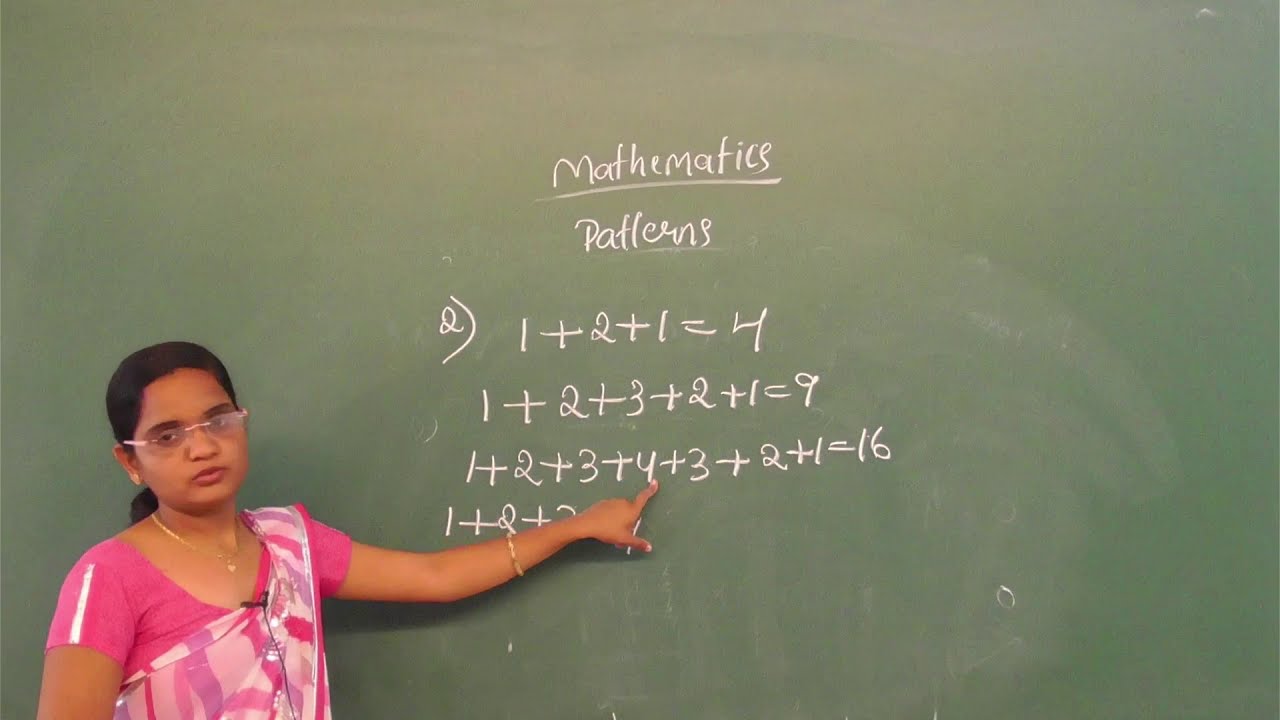 Mathematics
Patterns
2) 1+2+1=4
1+2+3+2+1=9
1+2+3+4+3+2+1=16
1+2+